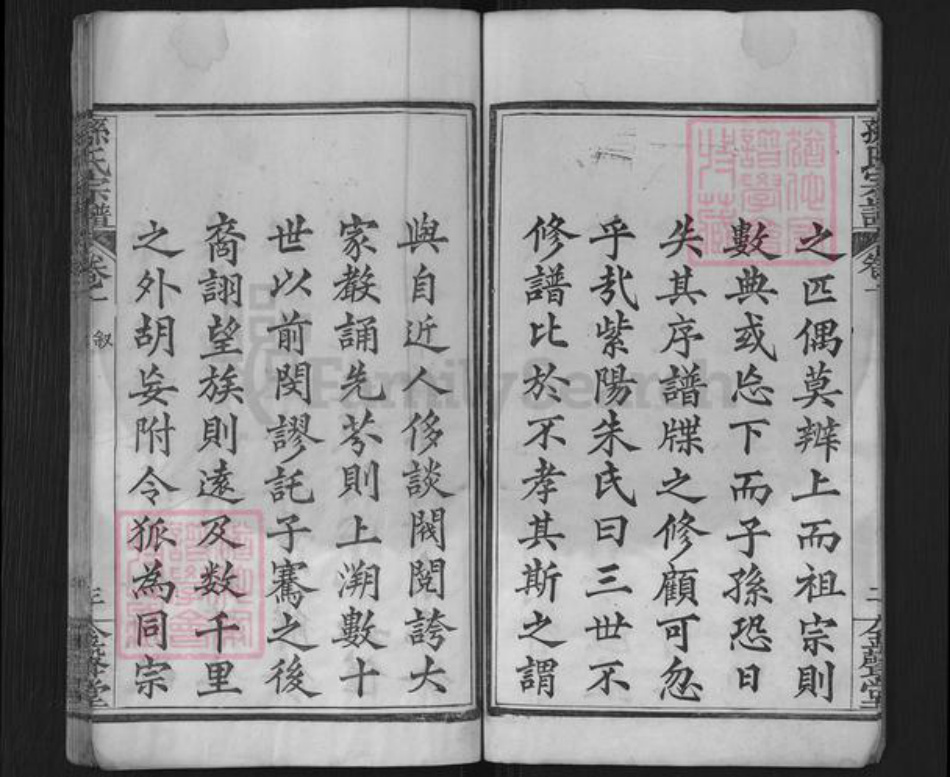 之匹偶莫辨上而祖宗則
數典或忘下而子孫恐日
失其序譜牒之修顧可忽
乎哉紫陽朱氏曰三世不
修譜比於不孝其斯之謂
與自近人侈談閥閱誇大
家敎誦先芬則上溯數十
世以前閔謬託子騫之後
裔詡望族則遠及数千里
之外胡妄附令狐為同宗
孫氏宗譜
卷一
叙
三
金聲堂
孫氏宗譜
卷一
二
金聲堂
FamilySearch